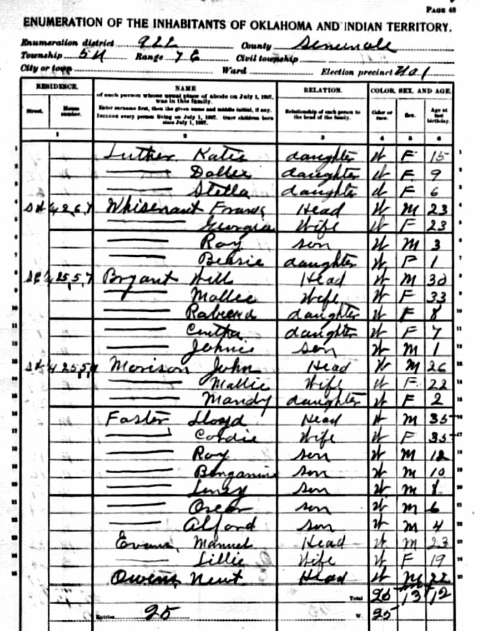 PAGE 48
ENUMERATION OF THE INHABITANTS OF OKLAHOMA AND INDIAN TERRITORY.
Enumeration district 922 County Seminole
Township 5 N Range 7 E Civil township
City or town Ward Election precinct No 1
RESIDENCE. NAME RELATION. COLOR, SEX, AND AGE.
of each person whose usual place of abode on July 1, 1907, was in this family.
Enter surname first, then the given name and middle initial, if any.
INCLUDE every person living on July 1, 1907. OMIT children born since July 1, 1907.
Relationship of each person to the head of the family.
Street. House number. Color or race. Sex. Age at last birthday.
1 2 3 4 5 6
1 Luther Katie daughter W F 15
2 Dollie daughter W F 9
3 Stella daughter W F 6
4 Whisenant Frank Head W M 23
5 Georgia Wife W F 23
6 Roy son W M 3
7 Bearie daughter W F 1
8 Bryant Will Head W M 30
9 Mollie Wife W F 33
10 daughter W F 8
11 daughter W F 7
12 Johnie son W M 1
13 Morison John Head W M 26
14 Mallie Wife W F 22
15 Mandy daughter W F 2
16 Faster Lloyd Head W M 35
17 Cordie Wife W F 35
18 Roy son W M 12
19 Bengamine son W M 10
20 son W M 8
21 Oscar son W M 6
22 Alford son W M 4
23 Evans Manuel Head W M 23
24 Lillie Wife W F 19
25 Owens Newt Head W M 22
Total 25 13 12
Entries 25 W 25